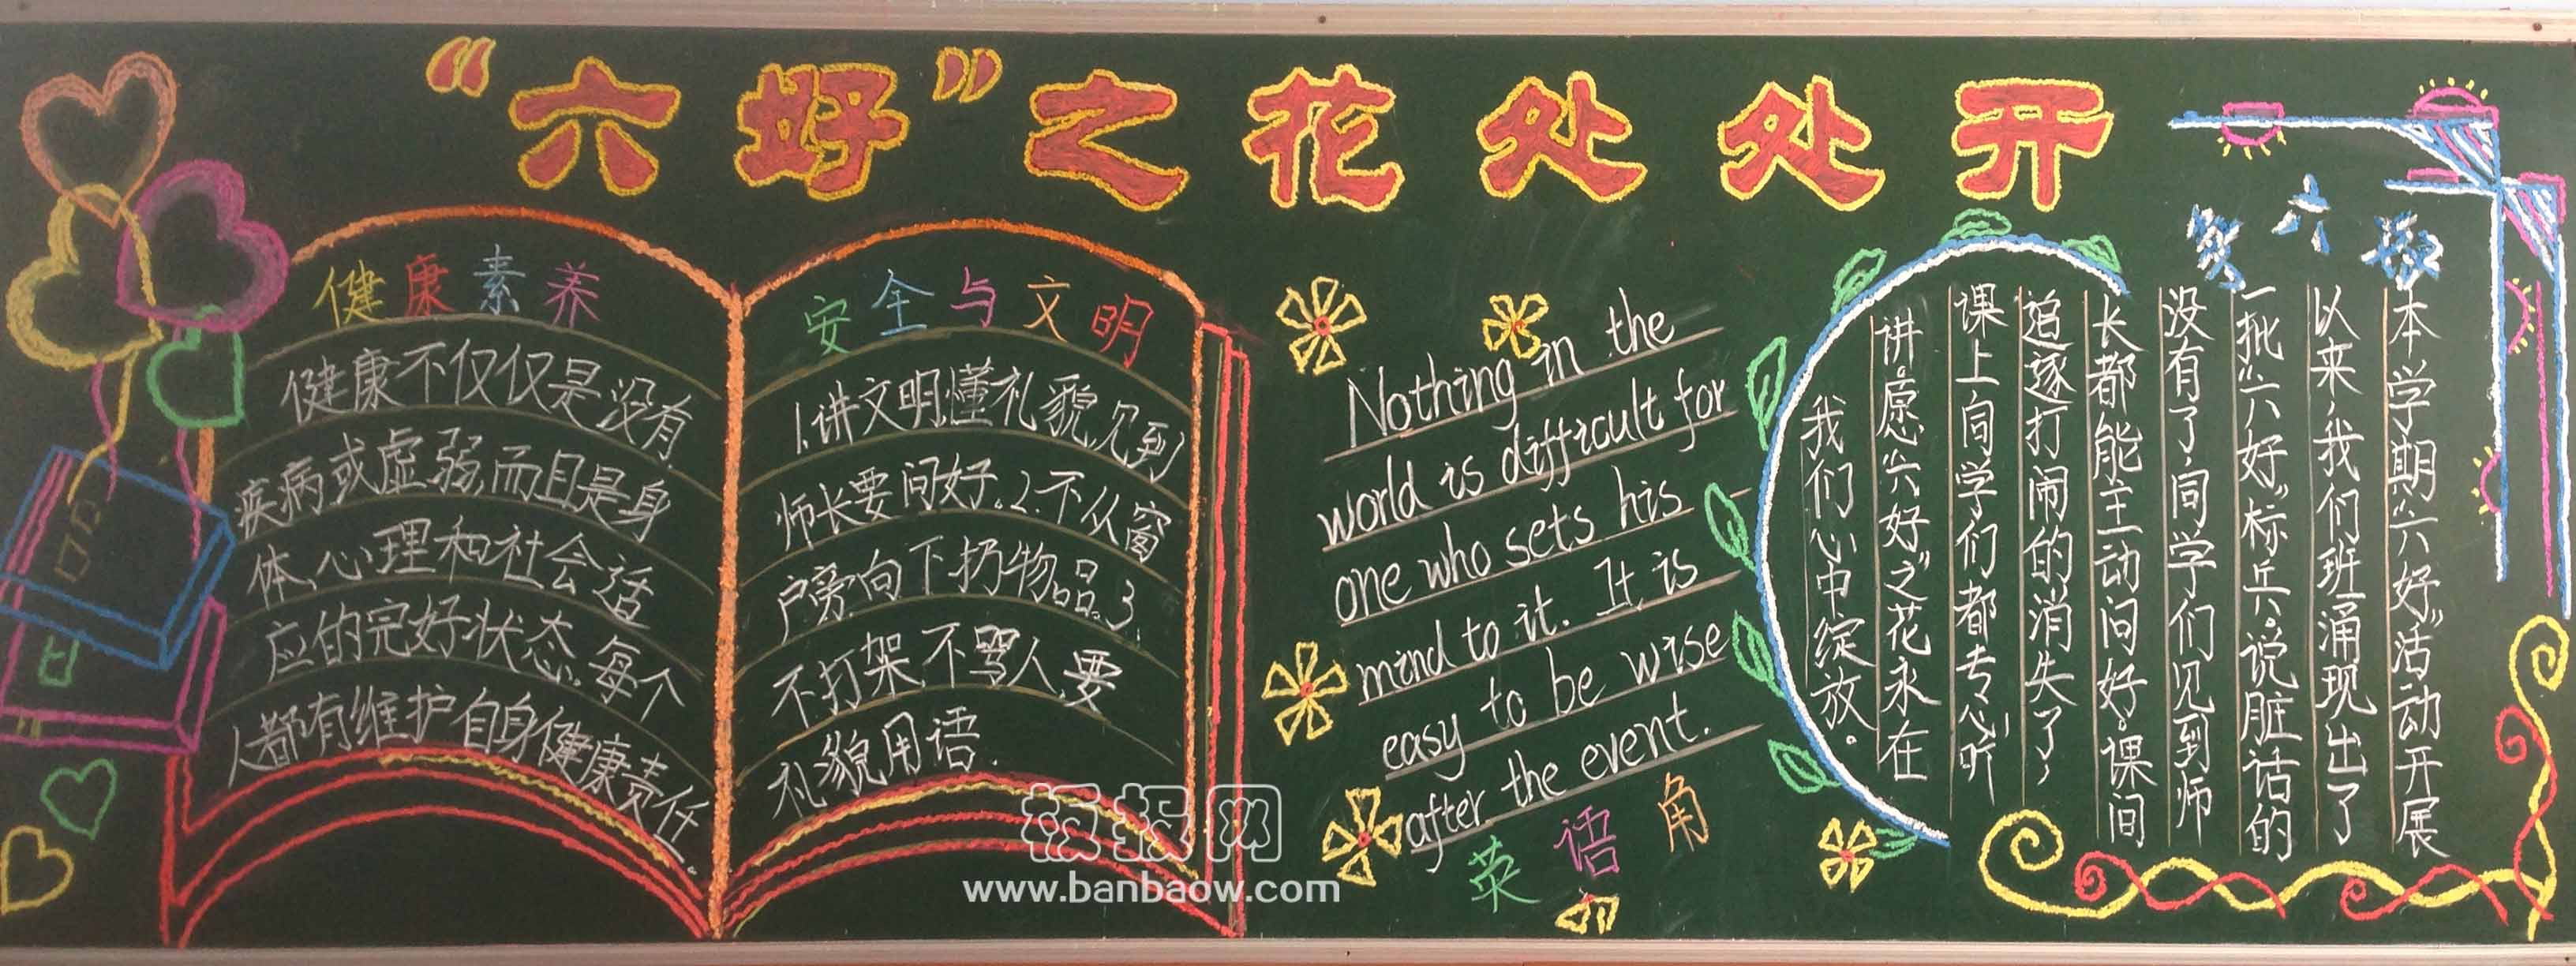 “六好”之花处处开
健康素养
健康不仅仅是没有
疾病或虚弱,而且是身
体、心理和社会适
应的完好状态.每个
人都有维护自身健康责任。
安全与文明
1.讲文明懂礼貌见到
师长要问好。2.不从窗
户旁向下扔物品.3.
不打架不骂人.要
礼貌用语.
Nothing in the
world is difficult for
one who sets his
mind to it. It is
easy to be wise
after the event.
英语角
本学期“六好”活动开展
以来,我们班涌现出了
一批“六好”标兵。说脏话的
没有了同学们见到师
长都能主动问好。课间
追逐打闹的消失了,
课上同学们都专心听
讲.愿“六好”之花永在
我们心中绽放。
板报网
www.banbaow.com